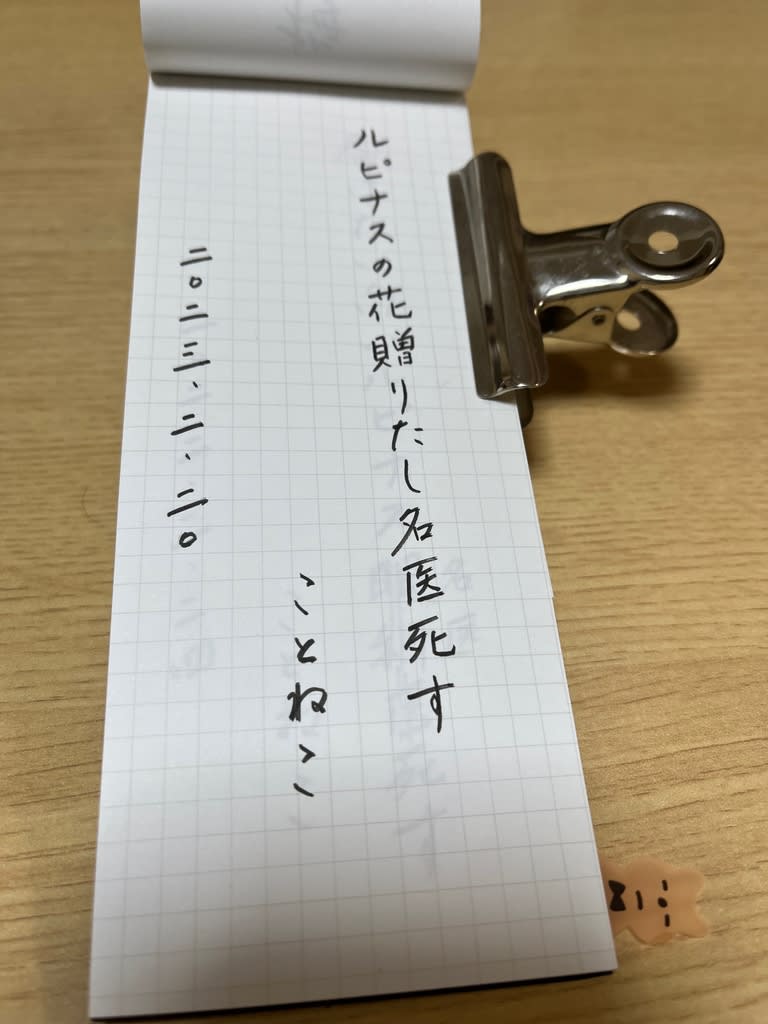 ルピナスの花贈りたし名医死す
ことねこ
二〇二三、二、二〇